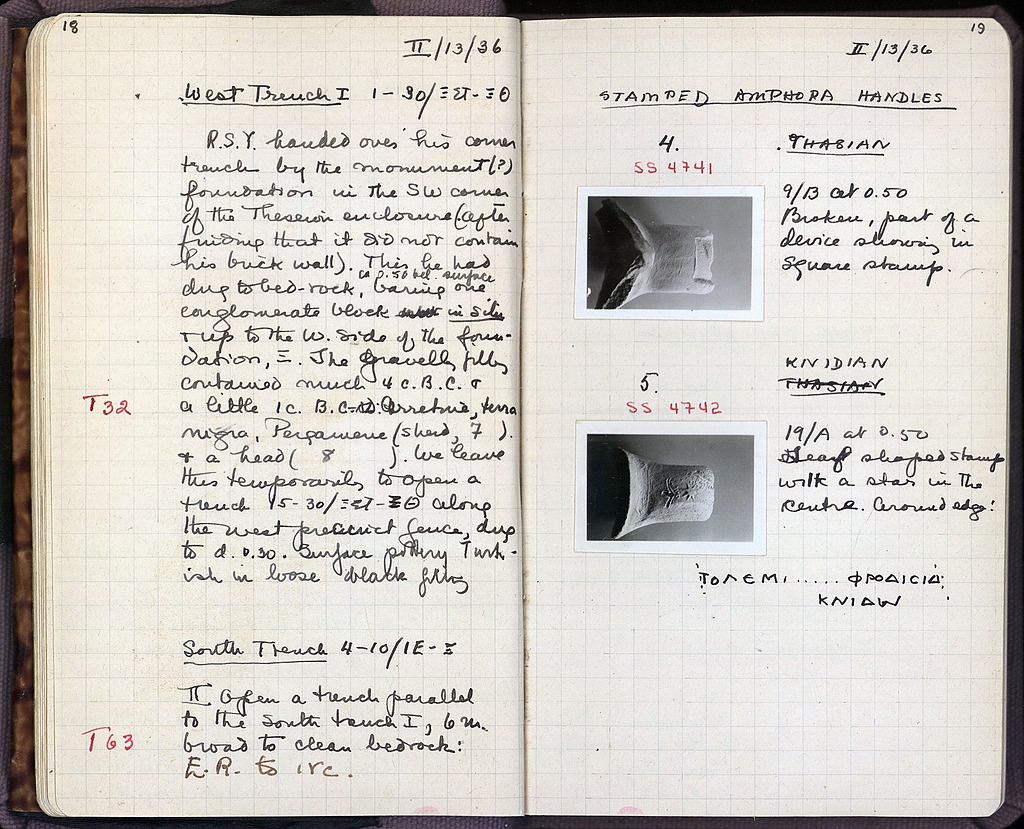 18
II/13/36
West Trench I 1-30/ΞΣΤ-ΞΘ
R.S.Y. handed over his corner
trench by the monument(?)
foundation in the SW corner
of the Theseion enclosure (after
finding that it did not contain
his brick wall). This he had
ca 0.50 bel. surface
dug to bed-rock, baring one
conglomerate block in situ
+ up to the W. side of the foun-
dation, Ξ. The gravelly filling
contained much 4 c. B.C. +
T32
a little 1c. B.C. Arretine, terra
nigra, Pergamene (sherd, 7 ).
+ a head ( 8 ). We leave
this temporarily to open a
trench 15-30/ΞΣΤ-ΞΘ along
the west precinct fence, dug
to d. 0.30. Surface pottery Turk-
ish in loose black filling
South Trench 4-10/ΙΕ-Ξ
II Open a trench parallel
to the South trench I, 6 m.
T63
broad to clean bedrock:
E.R. to
19
II/13/36
STAMPED AMPHORA HANDLES
4. THASIAN
SS 4741
9/B at 0.50
Broken, part of a
device showing in
square stamp.
KNIDIAN
5. THASIAN
SS 4742
19/A at 0.50
Leaf shaped stamp
with a star in the
centre. Around edge:
ΤΟΛΕΜΙ.....ΦΡΟΔΙCΙΑ
ΚΝΙΔΙΩΝ